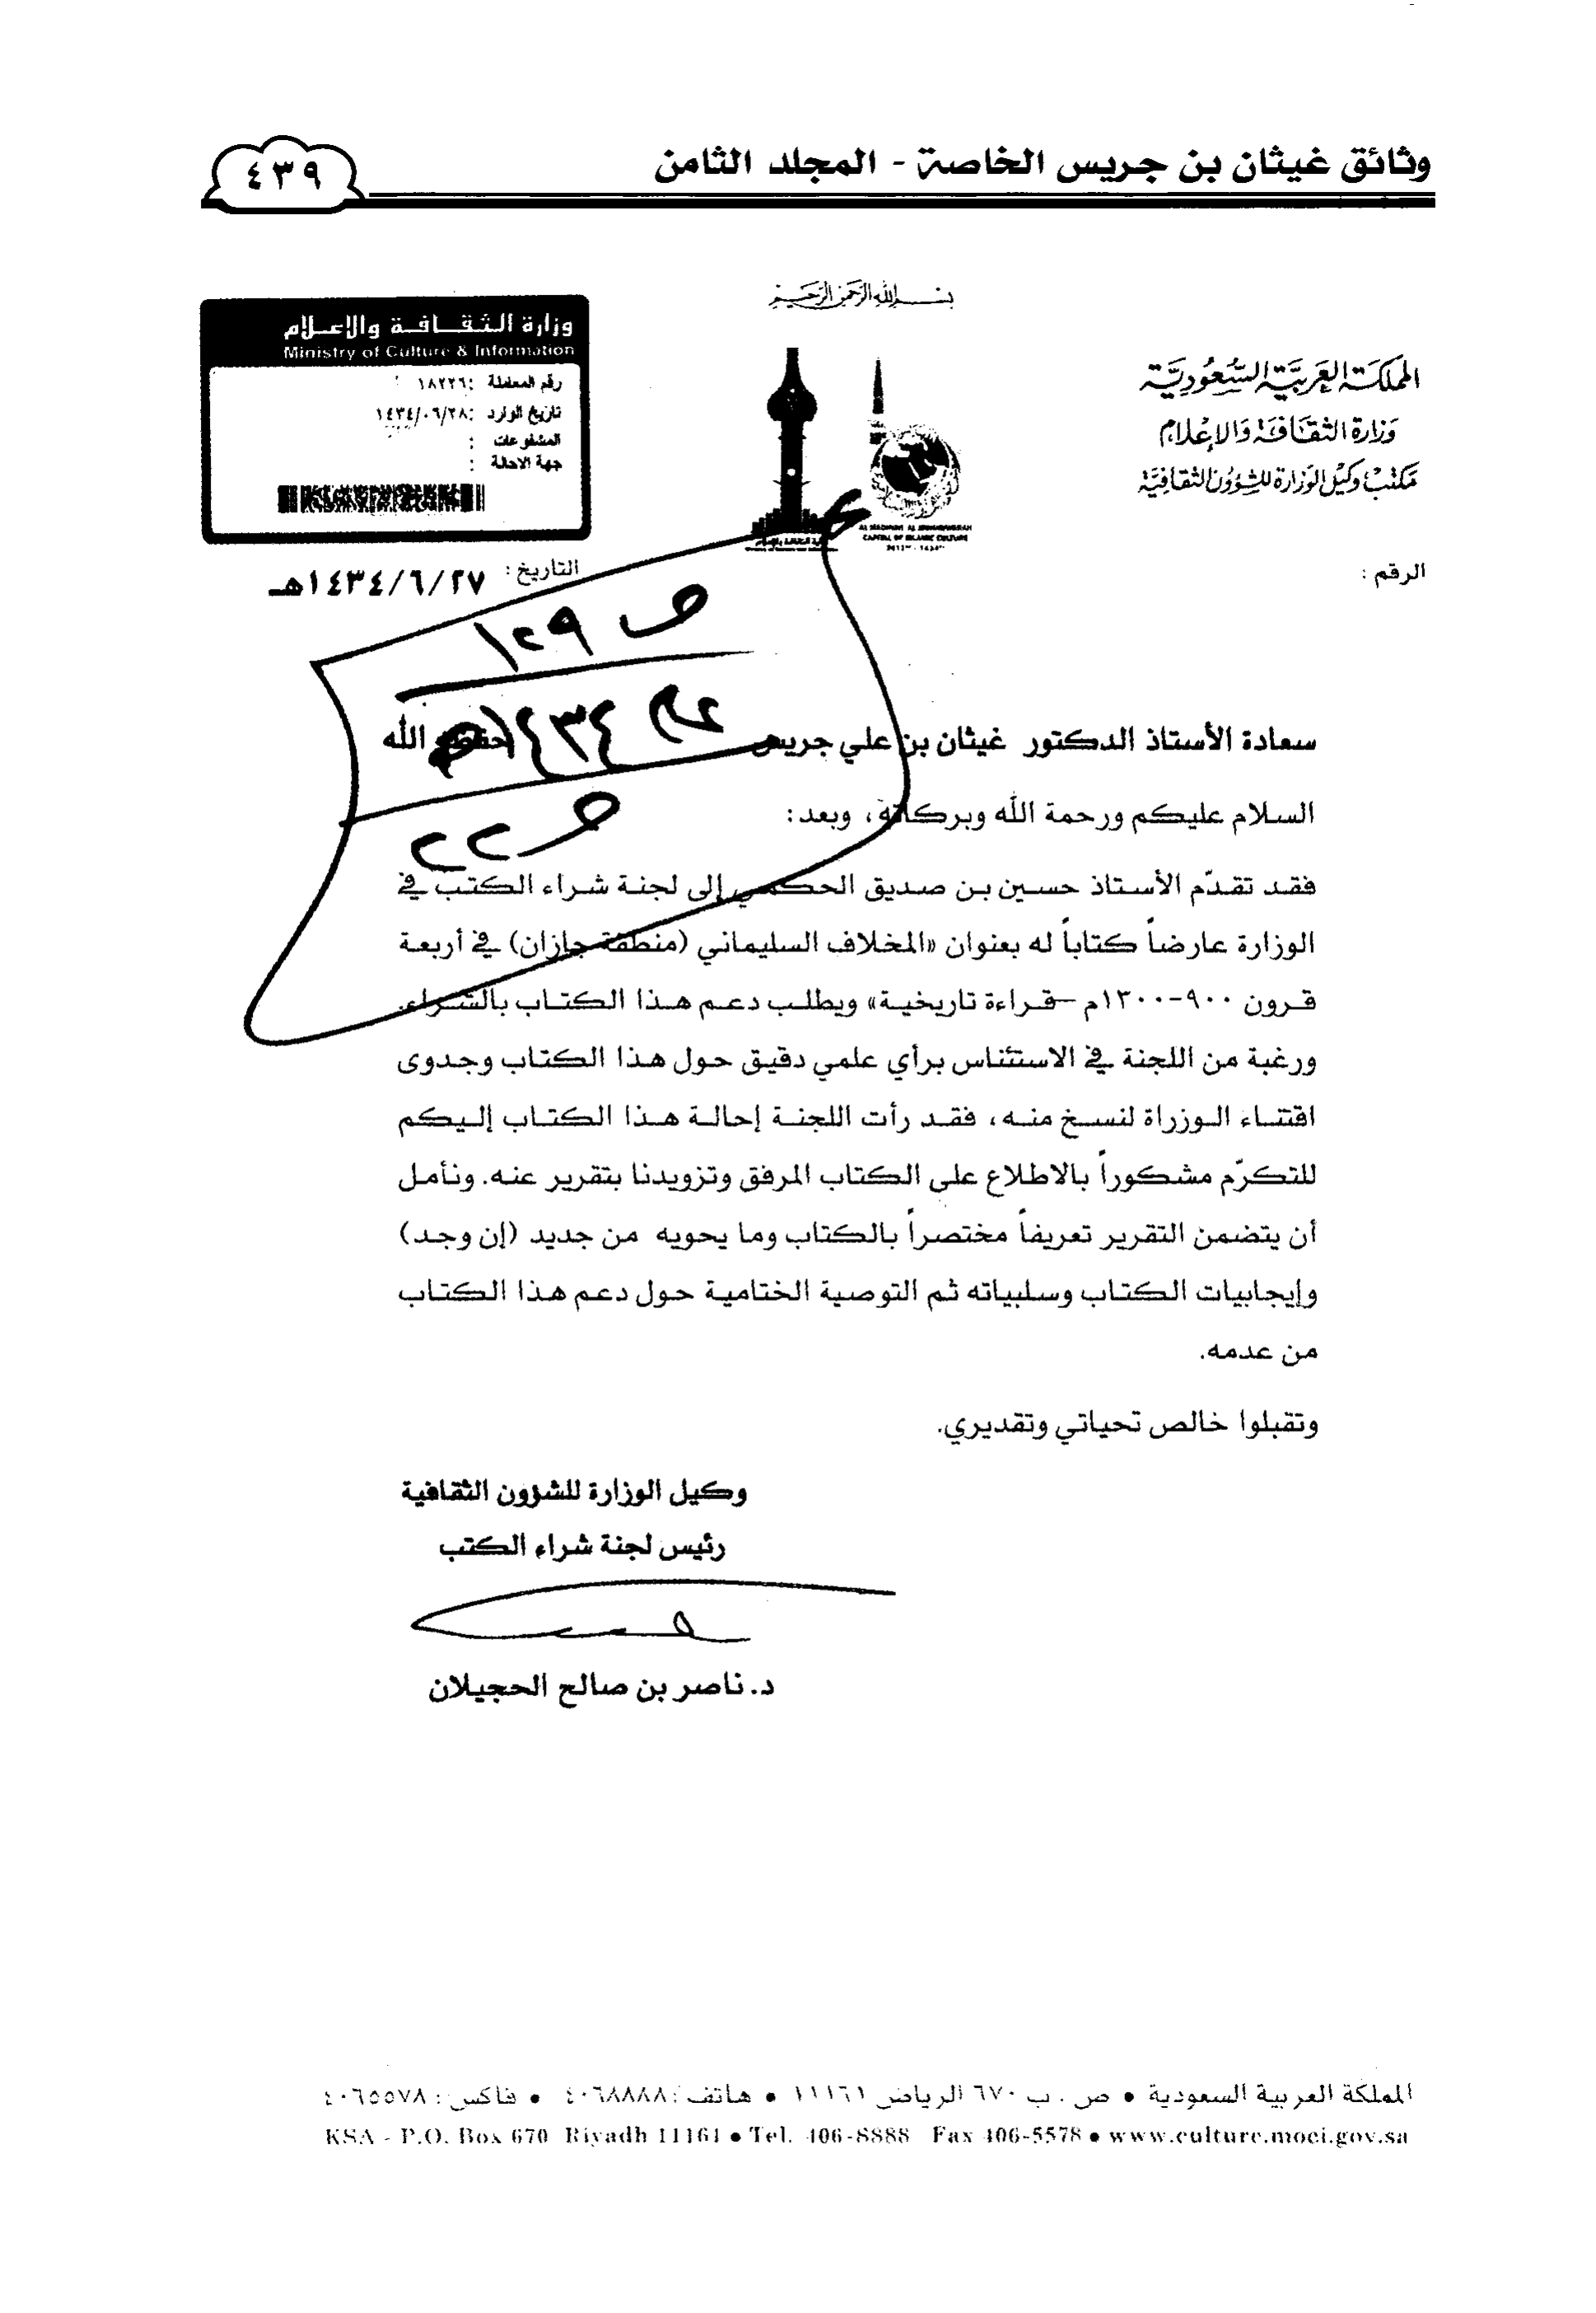 وثائق غيثان بن جريس الخاصة - المجلد الثامن
٤٣٩
بسم الله الرحمن الرحيم
المملكة العربية السعودية
وزارة الثقافة والإعلام
مكتب وكيل الوزارة للشؤون الثقافية
وزارة الثقافة والإعلام
Ministry of Culture & Information
رقم المعاملة : ١٨٢٢٦
تاريخ الوارد : ١٤٣٤/٠٦/٢٨
المشفوعات :
جهة الاحالة :
AL MADINAH AL MUNAWWARAH
CAPITAL OF ISLAMIC CULTURE
الرقم :
التاريخ : ١٤٣٤/٦/٢٧هـ
ص ١٢٩
عام ١٤٣٤هـ
ص ٢٢
سعادة الأستاذ الدكتور غيثان بن علي جريس حفظه الله
السلام عليكم ورحمة الله وبركاته، وبعد:
فقد تقدّم الأستاذ حسين بن صديق الحكمي إلى لجنة شراء الكتب في
الوزارة عارضاً كتاباً له بعنوان «المخلاف السليماني (منطقة جازان) في أربعة
قرون ٩٠٠-١٣٠٠م –قراءة تاريخية» ويطلب دعم هذا الكتاب بالشراء.
ورغبة من اللجنة في الاستئناس برأي علمي دقيق حول هذا الكتاب وجدوى
اقتناء الوزراة لنسخ منه، فقد رأت اللجنة إحالة هذا الكتاب إليكم
للتكرّم مشكوراً بالاطلاع على الكتاب المرفق وتزويدنا بتقرير عنه. ونأمل
أن يتضمن التقرير تعريفاً مختصراً بالكتاب وما يحويه من جديد (إن وجد)
وإيجابيات الكتاب وسلبياته ثم التوصية الختامية حول دعم هذا الكتاب
من عدمه.
وتقبلوا خالص تحياتي وتقديري.
وكيل الوزارة للشؤون الثقافية
رئيس لجنة شراء الكتب
د. ناصر بن صالح الحجيلان
المملكة العربية السعودية • ص . ب ٦٧٠ الرياض ١١١٦١ • هاتف : ٤٠٦٨٨٨٨ • فاكس : ٤٠٦٥٥٧٨
KSA - P.O. Box 670 Riyadh 11161 • Tel. 406-8888 Fax 406-5578 • www.culture.moci.gov.sa